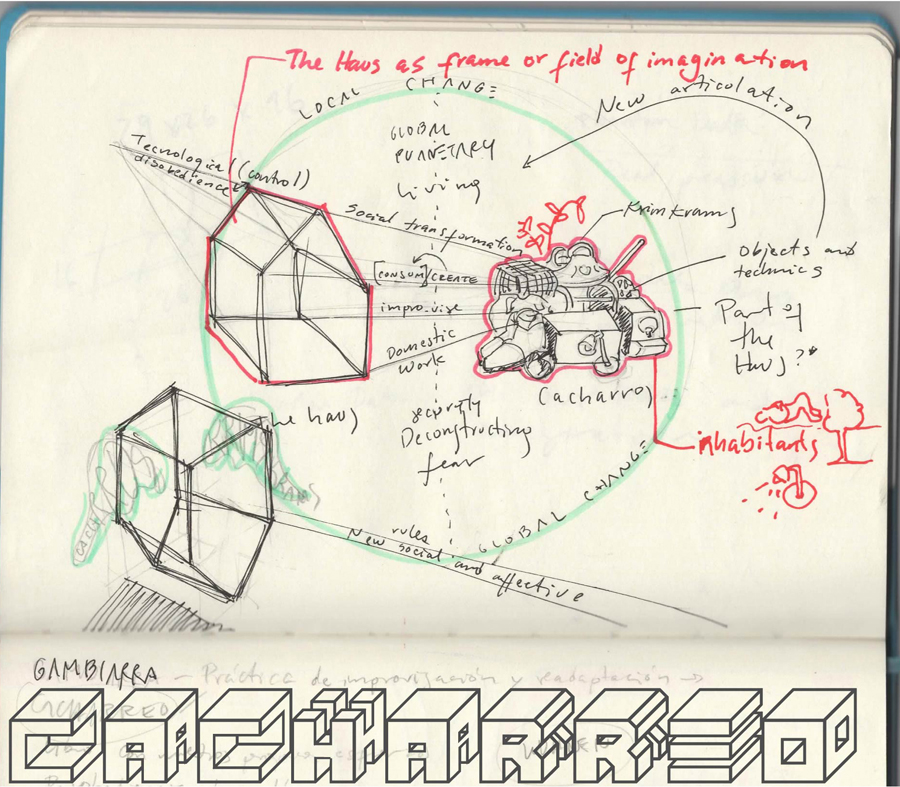 The Haus as frame or field of imagination
LOCAL CHANGE
New articulation
GLOBAL
PLANETARY
living
Tecnological (control)
disobedience
Social transformation
Krimkrams
Objects and
technics
[CONSUM] CREATE
improvise
Part of
the
Haus?*
Domestic
work
Cacharros
The haus
security
Deconstructing
fear
inhabitants
GLOBAL CHANGE
rules
New social and affective
GAMBIARRA - Práctica de improvisación y readaptación
CACHARREO
CACHARREO